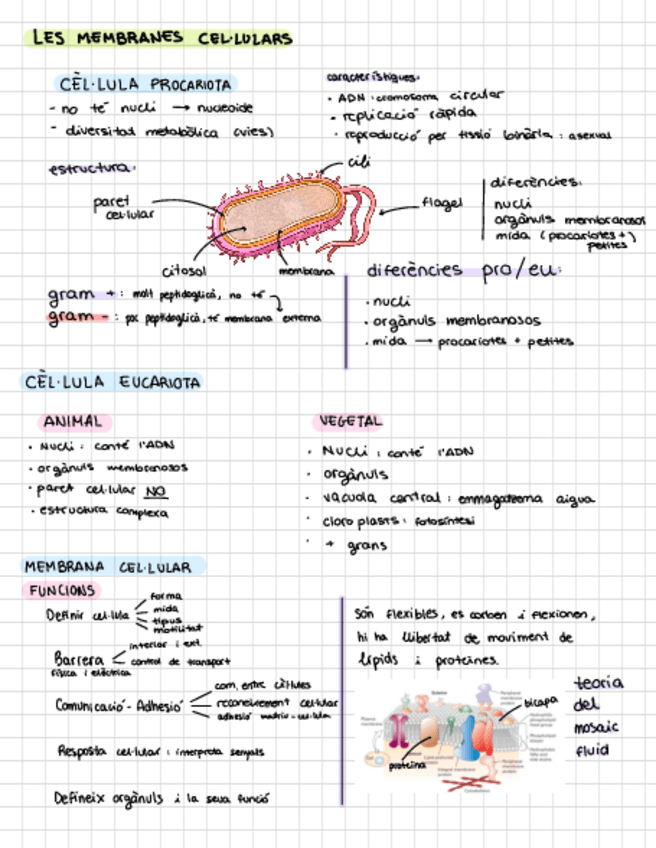 LES MEMBRANES CEL·LULARS
CÈL·LULA PROCARIOTA
- no té nucli → nucleoide
- diversitat metabòlica (vies)
característiques:
· ADN: cromosoma circular
· replicació ràpida
· reproducció per fissió binària: asexual
estructura:
cili
paret
cel·lular
flagel
citosol
membrana
diferències:
nucli
orgànuls membranosos
mida (procariotes +)
petites
gram + : molt peptidoglicà, no té
gram - : poc peptidoglicà, té membrana externa
diferències pro/eu:
· nucli
· orgànuls membranosos
· mida → procariotes + petites
CÈL·LULA EUCARIOTA
ANIMAL
· Nucli: conté l'ADN
· orgànuls membranosos
· paret cel·lular NO
· estructura complexa
VEGETAL
· Nucli: conté l'ADN
· orgànuls
· vacuola central: emmagatzema aigua
· cloroplasts: fotosíntesi
· + grans
MEMBRANA CEL·LULAR
FUNCIONS
Definir cel·lula
forma
mida
tipus
motilitat
Barrera
física i elèctrica
interior i ext.
control de transport
Comunicació-Adhesió
com. entre cèl·lules
reconeixement cel·lular
adhesió matriu-cel·lula
Resposta cel·lular: interpreta senyals
Defineix orgànuls i la seva funció
són flexibles, es corben i flexionen,
hi ha llibertat de moviment de
lípids i proteïnes.
bicapa
proteïna
teoria
del
mosaic
fluid